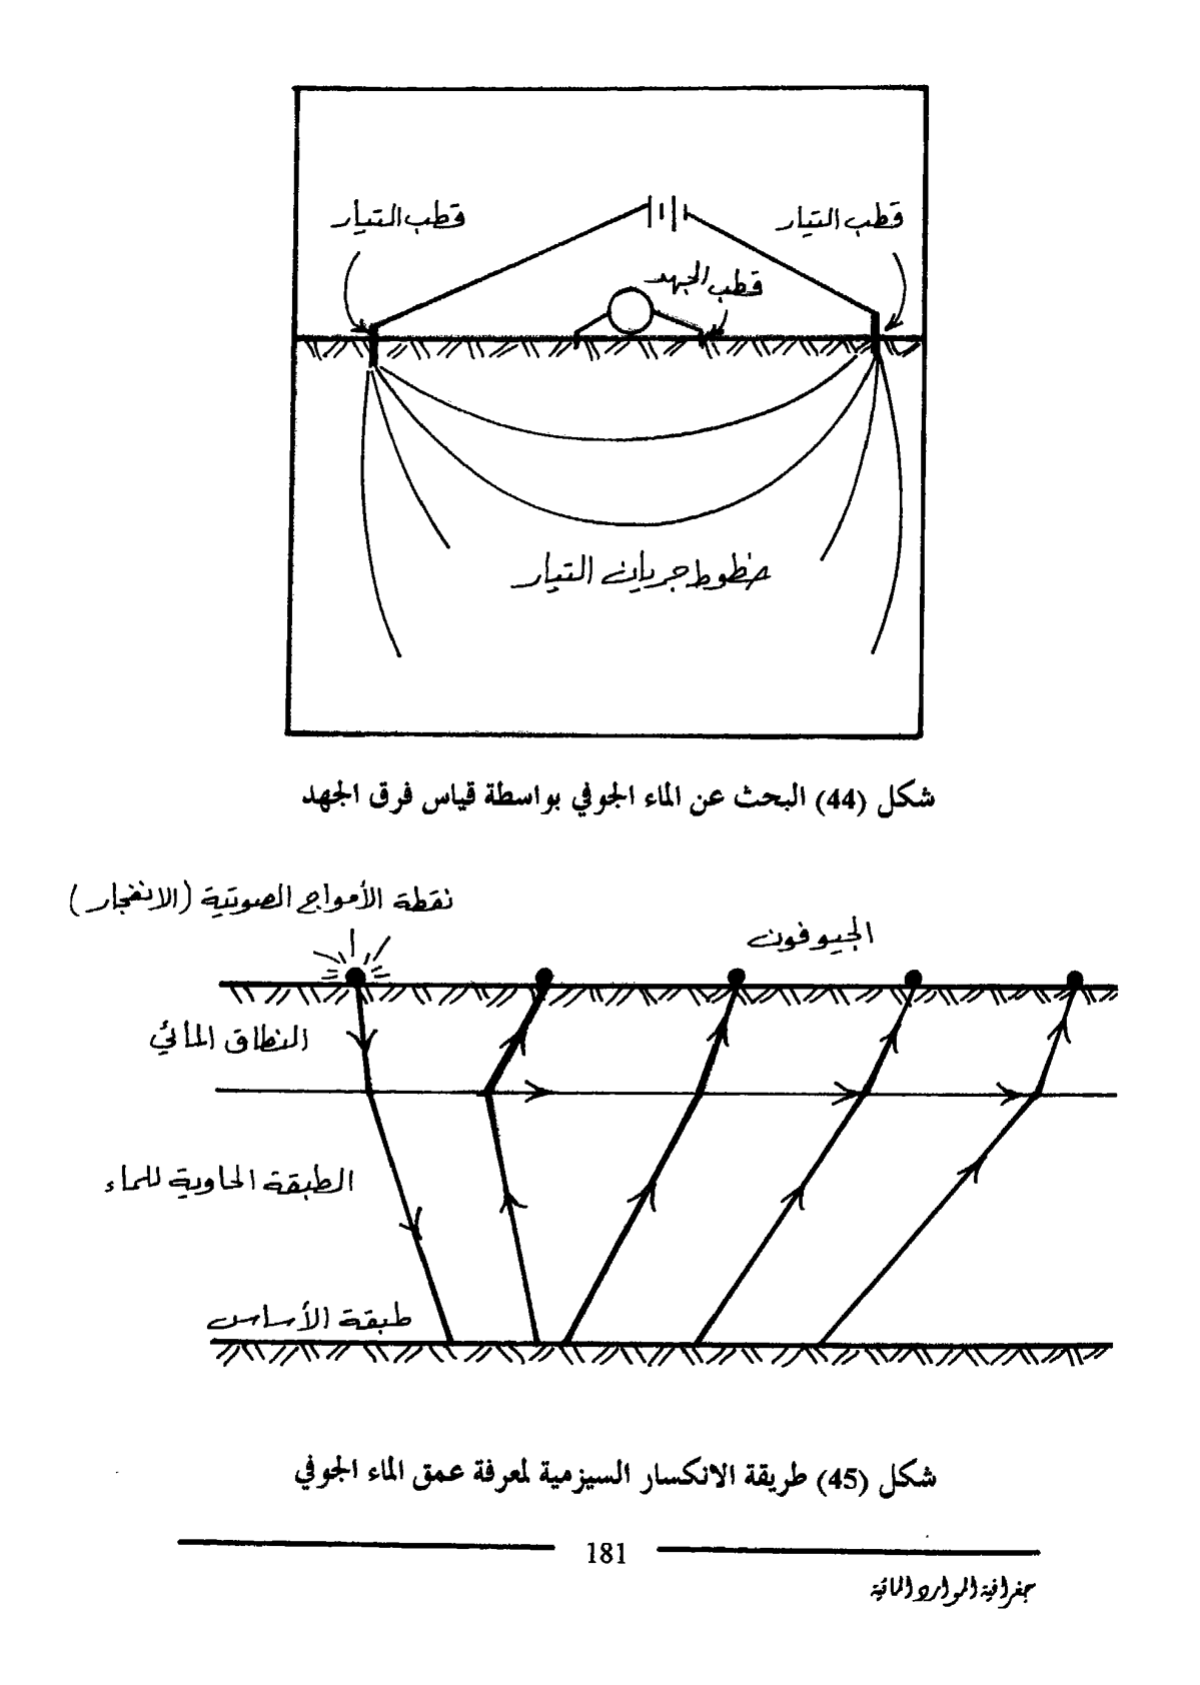 قطب التيار
قطب التيار
قطب الجهد
خطوط جريان التيار
شكل (44) البحث عن الماء الجوفي بواسطة قياس فرق الجهد
نقطة الأمواج الصوتية (الانفجار)
الجيوفون
النطاق المائي
الطبقة الحاوية للماء
طبقة الأساس
شكل (45) طريقة الانكسار السيزمية لمعرفة عمق الماء الجوفي
181
جغرافية الموارد المائية